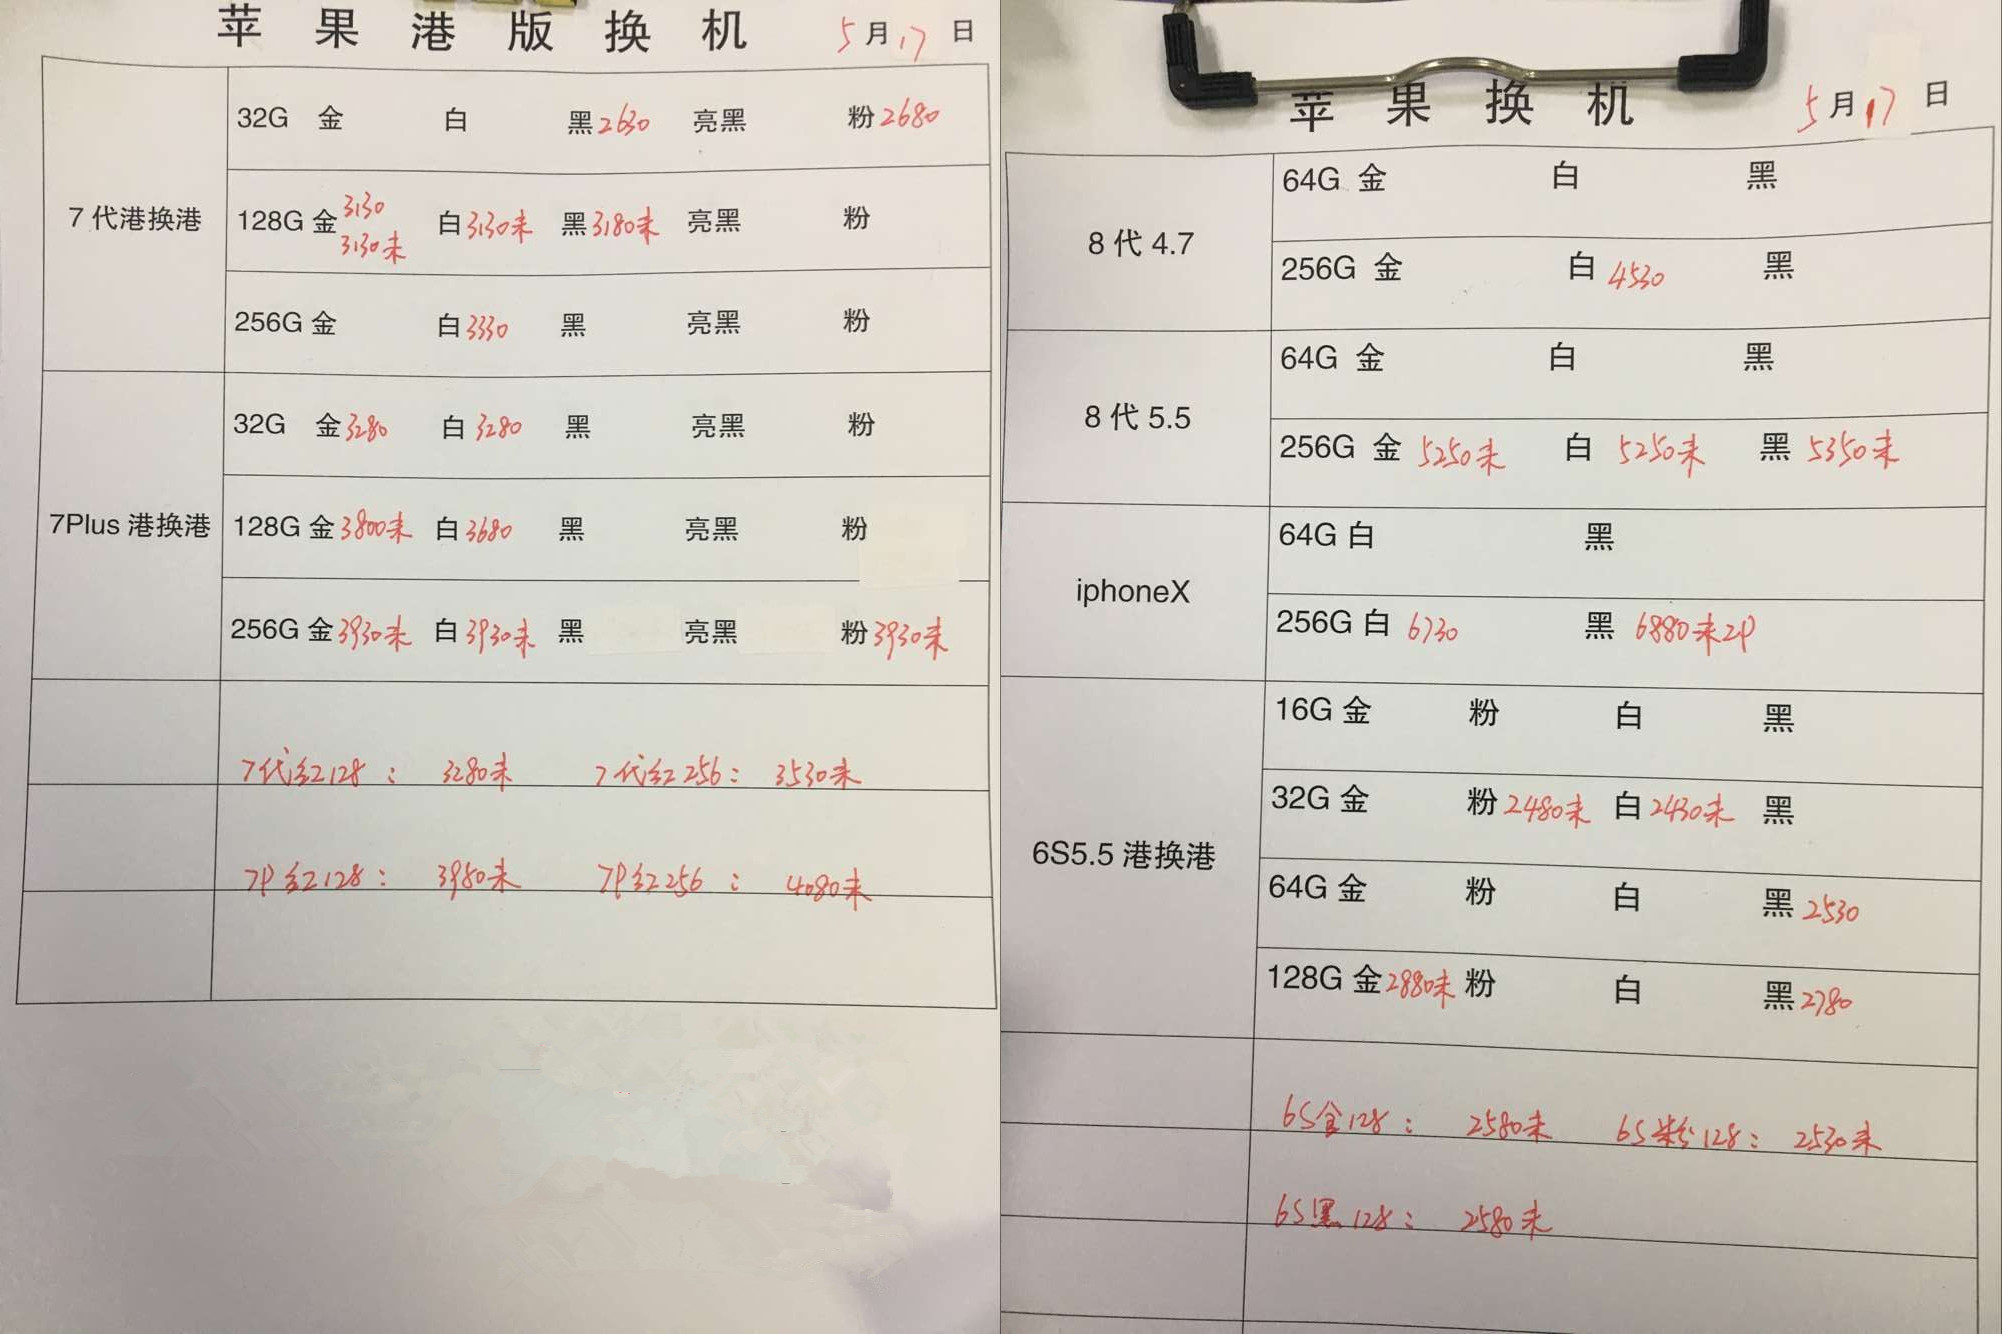 苹果港版换机 5月17日
7代港换港
32G 金 白 黑2630 亮黑 粉2680
128G 金3130 白3130未 黑3180未 亮黑 粉
3130未
256G 金 白3330 黑 亮黑 粉
7Plus港换港
32G 金3280 白3280 黑 亮黑 粉
128G 金3800未 白3680 黑 亮黑 粉
256G 金3930未 白3930未 黑 亮黑 粉3930未
7代红128: 3280未 7代红256: 3530未
7P红128: 3980未 7P红256: 4080未
苹果换机 5月17日
8代4.7
64G 金 白 黑
256G 金 白 4530 黑
8代5.5
64G 金 白 黑
256G 金 5250未 白 5250未 黑 5350未
iphoneX
64G 白 黑
256G 白 6730 黑 6880未2P
6S5.5港换港
16G 金 粉 白 黑
32G 金 粉2480未 白2430未 黑
64G 金 粉 白 黑2530
128G 金2880未 粉 白 黑2780
6S金128: 2580未 6S粉128: 2530未
6S黑128: 2580未